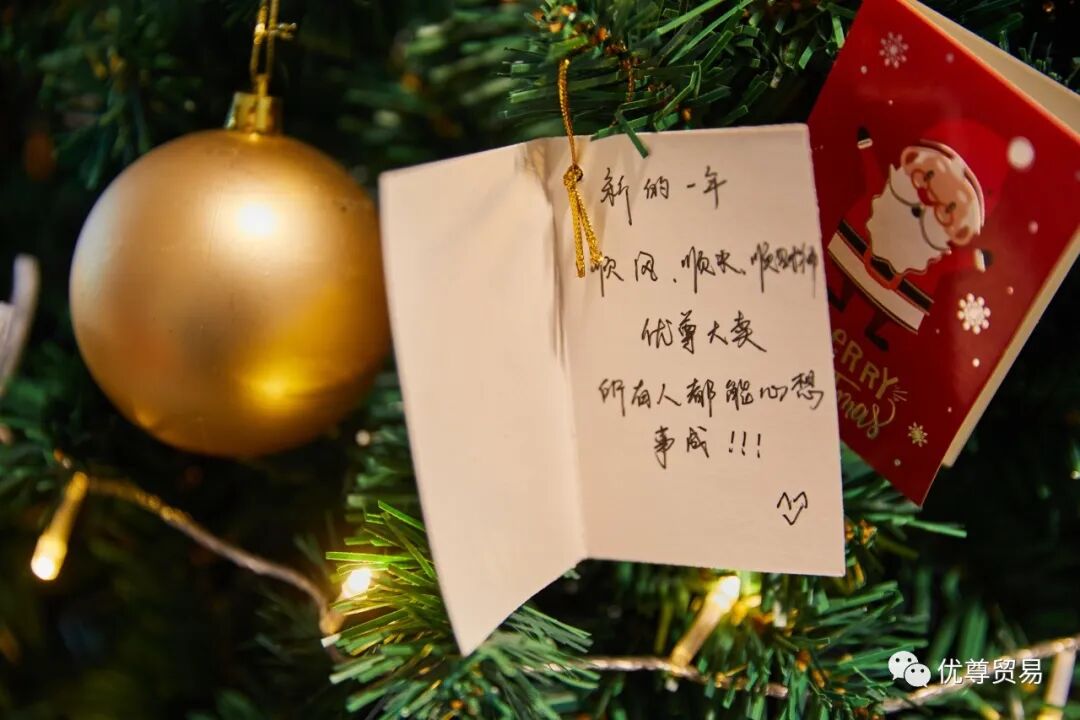 新的一年
顺风、顺水、顺财神
优尊大卖
所有人都能心想
事成!!!
ERRY
tmas
优尊贸易